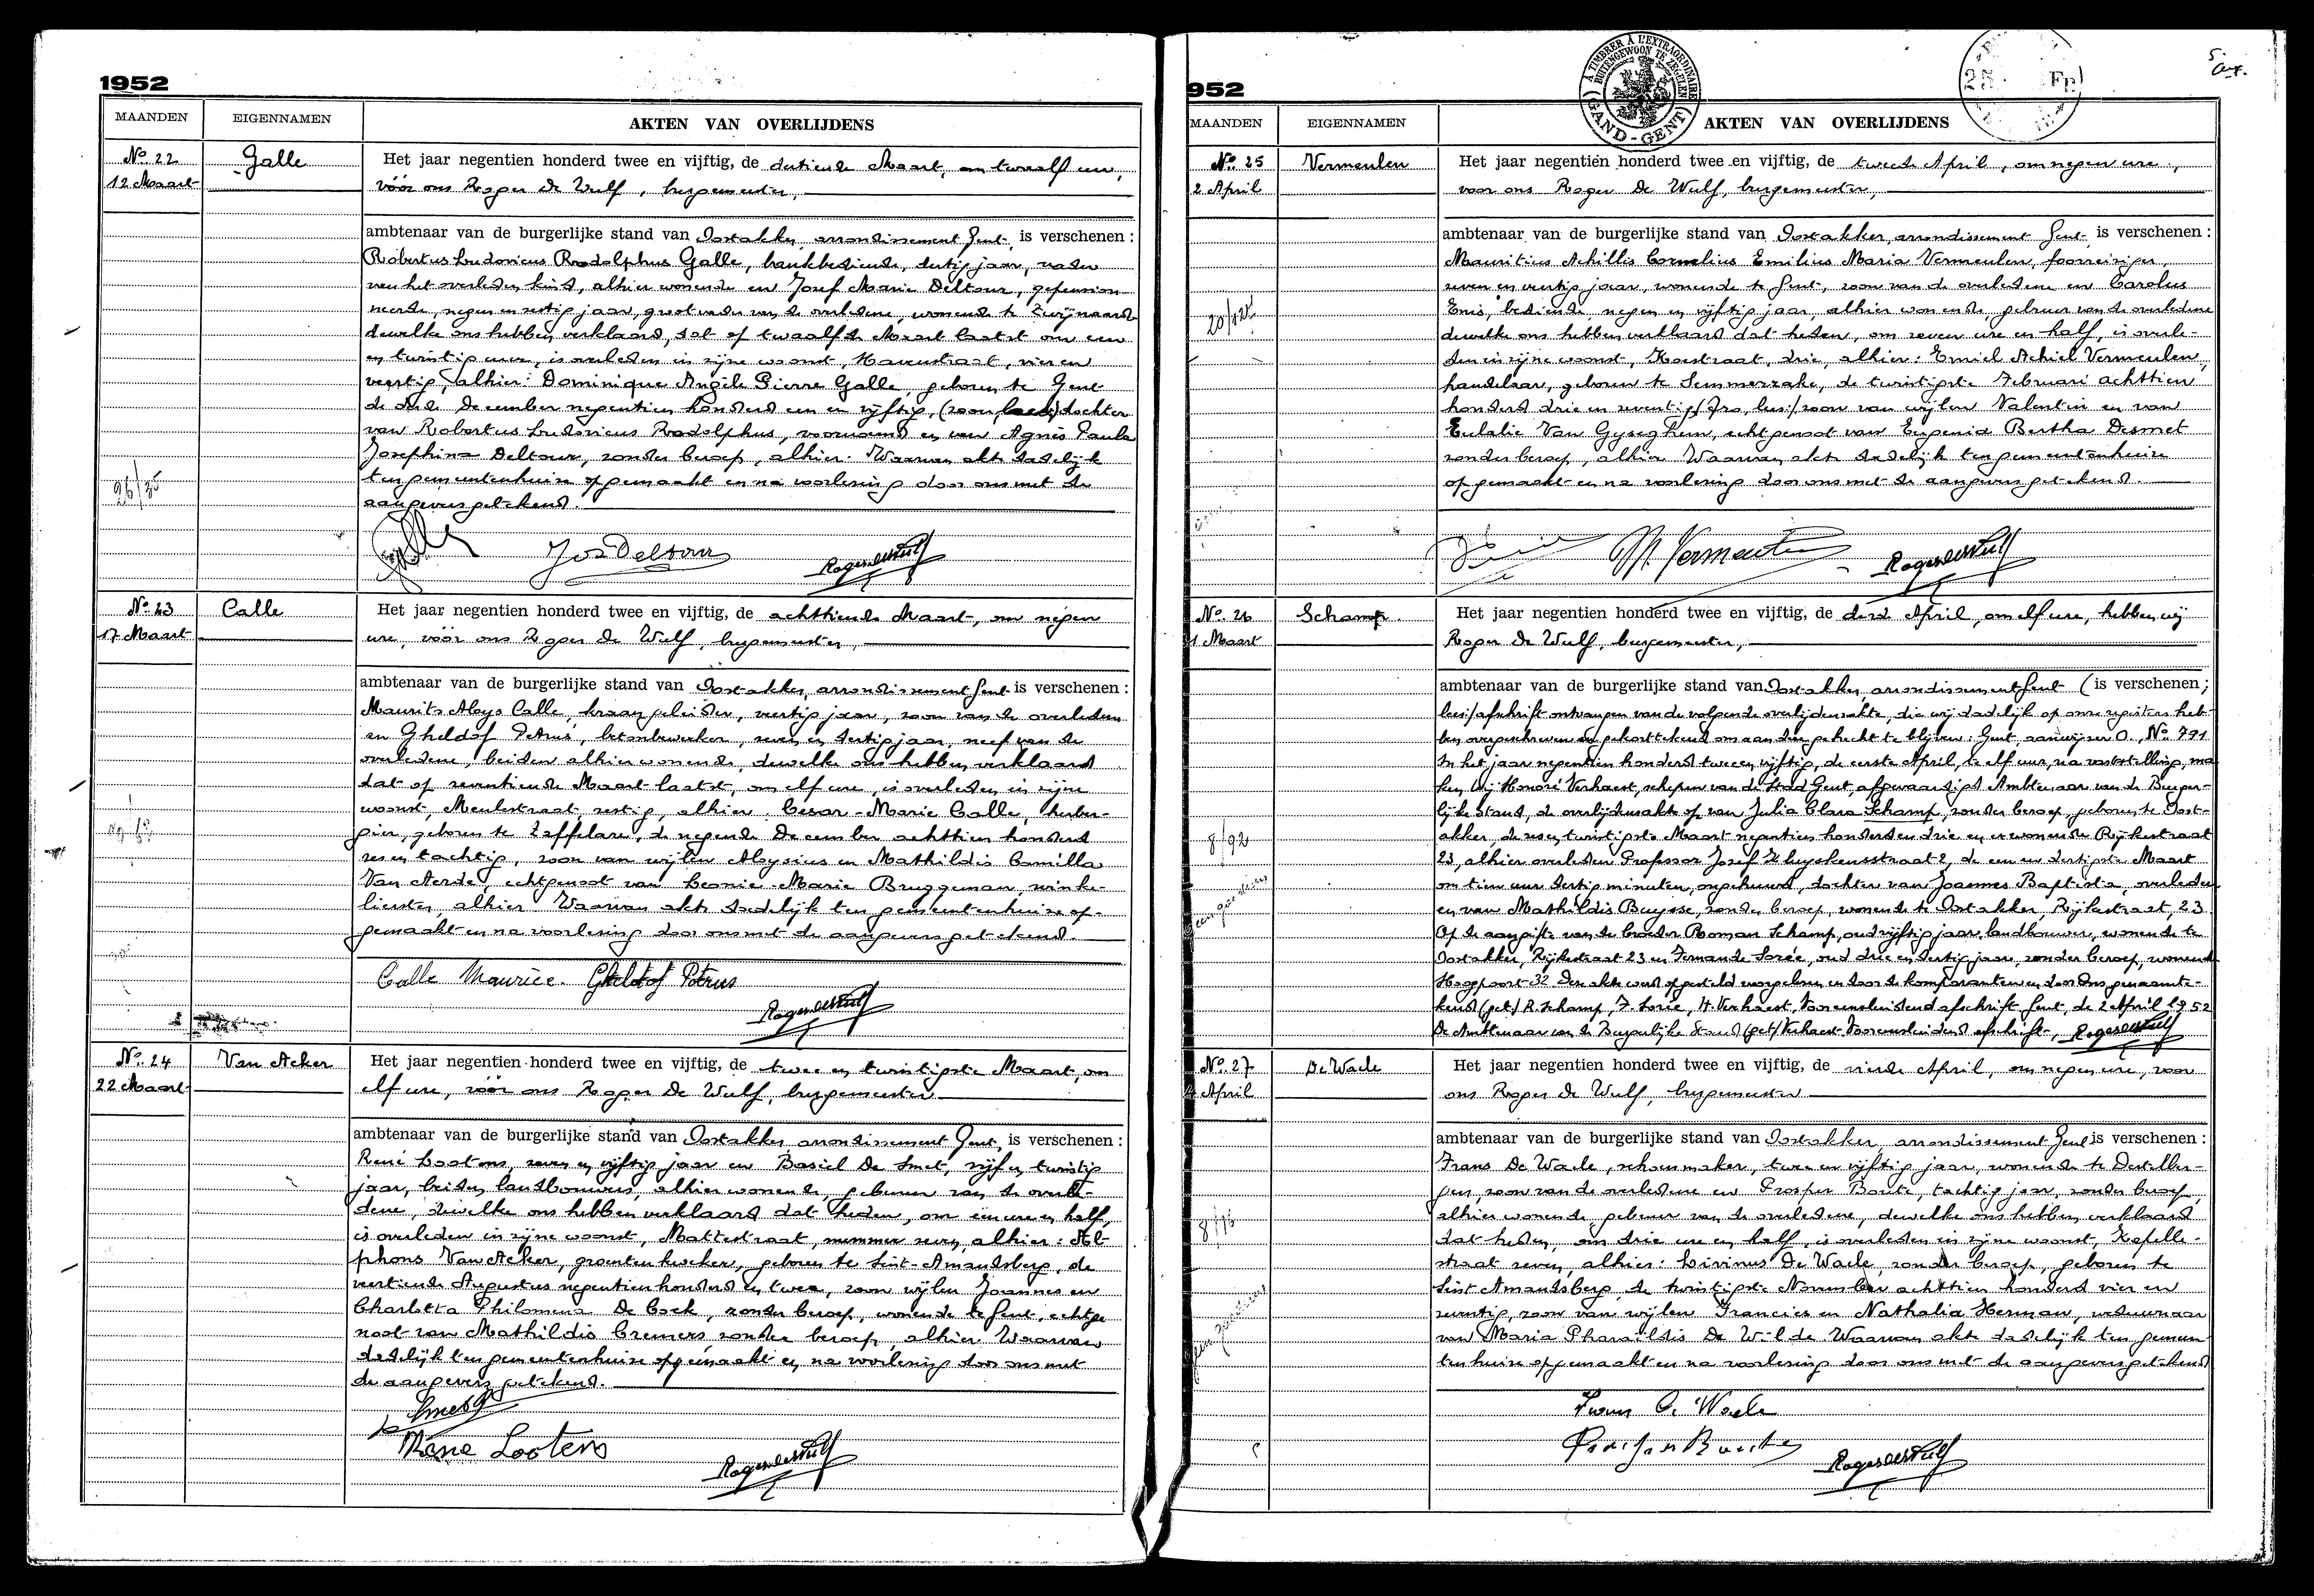 1952
MAANDEN EIGENNAMEN AKTEN VAN OVERLIJDENS
No 22 Galle Het jaar negentien honderd twee en vijftig, de dertiende Maart, om twaalf ure,
12 Maart vóór ons Roger De Wulf, burgemeester,
ambtenaar van de burgerlijke stand van Oostakker, arrondissement Gent, is verschenen :
Robertus Ludovicus Rodolphus Galle, bankbediende, dertig jaar, vader
van het overleden kind, alhier wonende en Jozef Marie Deltour, gepension-
neerde, negen en zestig jaar, grootvader van de overledene, wonende te Zwijnaarde
dewelke ons hebben verklaard, dat op twaalfde Maart laatst om een
en twintig ure, is overleden in zijne woonst, Havenstraat, vier en
veertig, alhier: Dominique Angèle Pierre Galle, geboren te Gent
de derde December negentien honderd een en vijftig, (zoon lees:) dochter
van Robertus Ludovicus Rodolphus, voornoemd en van Agnès Paula
Josephina Deltour, zonder beroep, alhier. Waarvan akte dadelijk
ten gemeentenhuize opgemaakt en na voorlezing door ons met de
26/35
aangevers getekend.
Galle Jos Deltour Roger de Wulf
No 23 Calle Het jaar negentien honderd twee en vijftig, de achttiende Maart, om negen
17 Maart ure, vóór ons Roger De Wulf, burgemeester,
ambtenaar van de burgerlijke stand van Oostakker, arrondissement Gent is verschenen :
Maurits Aloys Calle, kraangeleider, veertig jaar, zoon van de overledene
en Gheldof Petrus, betonbewerker, zeven en dertig jaar, neef van de
overledene, beiden alhier wonende, dewelke ons hebben verklaard
dat op zeventiende Maart laatst, om elf ure, is overleden in zijne
woonst, Meulestraat, zestig, alhier: Cesar-Marie Calle, herber-
gier, geboren te Zaffelare, de negende December achttien honderd
zes en tachtig, zoon van wijlen Aloysius en Mathildis Camilla
Van Aerde, echtgenoot van Leonie-Marie Bruggeman, winke-
lierster, alhier. Waarvan akte dadelijk ten gemeentenhuize op-
gemaakt en na voorlezing door ons met de aangevers getekend.
Calle Maurice. Gheldof Petrus
Roger de Wulf
No 24 Van Acker Het jaar negentien honderd twee en vijftig, de twee en twintigste Maart, om
22 Maart elf ure, vóór ons Roger De Wulf, burgemeester
ambtenaar van de burgerlijke stand van Oostakker, arrondissement Gent, is verschenen :
René Lootens, zeven en vijftig jaar en Basiel De Smet, vijf en twintig
jaar, beiden landbouwers, alhier wonende, geburen van de overle-
dene, dewelke ons hebben verklaard dat heden, om één ure en half,
is overleden in zijne woonst, Mattestraat, nummer zeven, alhier: Al-
phons Van Acker, groentenkweker, geboren te Sint-Amandsberg, de
veertiende Augustus negentien honderd en twee, zoon wijlen Joannes en
Charlotta Philomena De Cock, zonder beroep, wonende te Gent, echtge-
noot van Mathildis Cremers zonder beroep, alhier. Waarvan
dadelijk ten gemeentenhuize opgemaakt en na voorlezing door ons met
de aangevers getekend.
De Smet B
René Lootens Roger de Wulf
952
À TIMBRER À L'EXTRAORDINAIRE
BUITENGEWOON TE ZEGELEN
(GAND-GENT)
25 Fr.
MAANDEN EIGENNAMEN AKTEN VAN OVERLIJDENS
No 25 Vermeulen Het jaar negentien honderd twee en vijftig, de tweede April, om negen ure,
2 April voor ons Roger De Wulf, burgemeester,
ambtenaar van de burgerlijke stand van Oostakker, arrondissement Gent, is verschenen :
Mauritius Achillis Cornelius Emilius Maria Vermeulen, foorreiziger,
zeven en veertig jaar, wonende te Gent, zoon van de overledene en Carolus
Enis, bediende, negen en vijftig jaar, alhier wonende, gebuur van de overledene
dewelke ons hebben verklaard dat heden, om zeven ure en half, is overle-
den in zijne woonst, Koestraat, drie, alhier: Emiel Achiel Vermeulen,
handelaar, geboren te Semmerzake, de twintigste Februari achttien
honderd drie en zeventig, zoon van wijlen Valentin en van
Eulalie Van Gyseghem, echtgenoot van Eugenia Bertha Desmet
zonder beroep, alhier. Waarvan akte dadelijk ten gemeentenhuize
opgemaakt en na voorlezing door ons met de aangevers getekend.
M. Vermeulen Roger de Wulf
No 26 Schamp. Het jaar negentien honderd twee en vijftig, de derde April, om elf ure, hebben wij
31 Maart Roger De Wulf, burgemeester,
ambtenaar van de burgerlijke stand van Oostakker, arrondissement Gent (is verschenen;
lees:) afschrift ontvangen van de volgende overlijdensakte, die wij dadelijk op onze registers heb-
ben overgeschreven en gekorttekend om aan deze gehecht te blijven: Gent, aanwijzer O., No 791
In het jaar negentien honderd twee en vijftig, de eerste April, te elf uur, na vaststelling, ma-
ken wij Honoré Verhaest, schepen van de Stad Gent, afgevaardigd Ambtenaar van de Burger-
lijke Stand, de overlijdensakte op van Julia Clara Schamp, zonder beroep, geboren te Oost-
akker, de zes en twintigste Maart negentien honderd en drie en er wonende Rijkestraat
23, alhier overleden Professor Jozef Kluyskensstraat 2, de een en dertigste Maart
om tien uur dertig minuten, ongehuwd, dochter van Joannes Baptista, overleden
en van Mathildis Buysse, zonder beroep, wonende te Oostakker, Rijkestraat, 23.
Op de aangifte van de broeder Roman Schamp, oud vijftig jaar, landbouwer, wonende te
Oostakker, Rijkestraat 23 en Fernande Sorée, oud drie en dertig jaar, zonder beroep, wonende
Hoogpoort 32. Deze akte werd opgesteld voorgelezen en door de komparanten en door Ons genaamte-
kend (get) R. Schamp, F. Sorée, H. Verhaest, Voor eensluidend afschrift Gent, de 2 April 1952
De Ambtenaar van de Burgerlijke Stand (get) Verhaest. Voor eensluidend afschrift, Roger de Wulf
8/92
No 27 De Waele Het jaar negentien honderd twee en vijftig, de vierde April, om negen ure, voor
4 April ons Roger De Wulf, burgemeester
ambtenaar van de burgerlijke stand van Oostakker, arrondissement Gent is verschenen :
Frans De Waele, schoenmaker, twee en vijftig jaar, wonende te Destelber-
gen, zoon van de overledene en Prosper Boute, tachtig jaar, zonder beroep,
alhier wonende, gebuur van de overledene, dewelke ons hebben verklaard
dat heden, om drie ure en half, is overleden in zijne woonst, Kapelle-
straat zeven, alhier: Livinus De Waele, zonder beroep, geboren te
Sint Amandsberg, de twintigste November achttien honderd vier en
zeventig, zoon van wijlen Francies en Nathalia Herman, weduwnaar
van Maria Pharaïldis De Wilde. Waarvan akte dadelijk ten gemeen-
tenhuize opgemaakt en na voorlezing door ons met de aangevers getekend
Frans De Waele
Prosper Boute Roger de Wulf